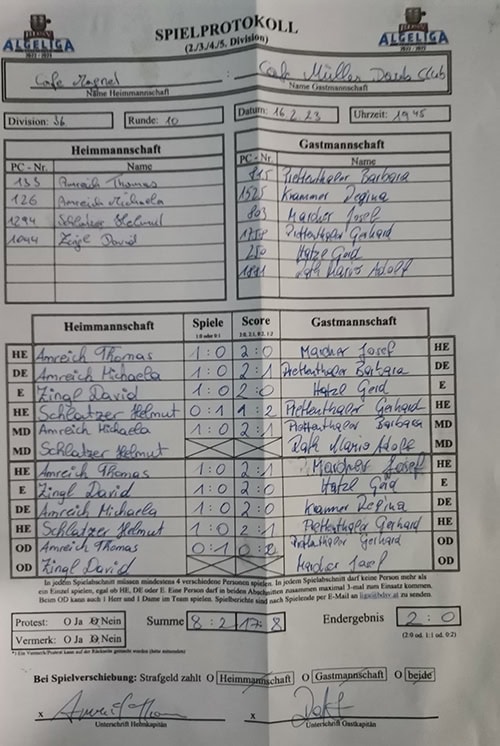 ALGELIGA
2022 - 2023
SPIELPROTOKOLL
(2./3./4./5. Division)
ALGELIGA
2022 - 2023
Cafe Magnet : Cafe Müller Darts Club
Name Heimmannschaft Name Gastmannschaft
Division: 3b Runde: 10 Datum: 16.2.23 Uhrzeit: 19 45
Heimmannschaft
PC - Nr. Name
133 Amreich Thomas
126 Amreich Michaela
1294 Schlatzer Helmut
1044 Zingl David
Gastmannschaft
PC - Nr. Name
815 Plettenthaler Barbara
1525 Krammer Regina
803 Mardner Josef
1758 Plettenthaler Gerhard
250 Hatzl Gerd
Rath Mario Adolf
Heimmannschaft Spiele Score Gastmannschaft
1:0 oder 0:1 2:0, 2:1, 0:2, 1:2
HE Amreich Thomas 1:0 2:0 Mardner Josef HE
DE Amreich Michaela 1:0 2:1 Plettenthaler Barbara DE
E Zingl David 1:0 2:0 Hatzl Gerd E
HE Schlatzer Helmut 0:1 1:2 Plettenthaler Gerhard HE
MD Amreich Michaela 1:0 2:1 Plettenthaler Barbara MD
MD Schlatzer Helmut Rath Mario Adolf MD
HE Amreich Thomas 1:0 2:1 Mardner Josef HE
E Zingl David 1:0 2:0 Hatzl Gerd E
DE Amreich Michaela 1:0 2:0 Krammer Regina DE
HE Schlatzer Helmut 1:0 2:1 Plettenthaler Gerhard HE
OD Amreich Thomas 0:1 0:2 Plettenthaler Gerhard OD
OD Zingl David Mardner Josef OD
In jedem Spielabschnitt müssen mindestens 4 verschiedene Personen spielen. In jedem Spielabschnitt darf keine Person mehr als
ein Einzel spielen, egal ob HE, DE oder E. Eine Person darf in beiden Abschnitten zusammen maximal 3-mal zum Einsatz kommen.
Beim OD kann auch 1 Herr und 1 Dame im Team spielen. Spielberichte sind nach Spielende per E-Mail an liga@bdsv.at zu senden.
Protest: O Ja O Nein Summe 8:2 17:8 Endergebnis 2:0
Vermerk: O Ja O Nein (2:0 od. 1:1 od. 0:2)
*) Ein Vermerk/Protest kann auf der Rückseite gemacht werden (bitte mitsenden)
Bei Spielverschiebung: Strafgeld zahlt O Heimmannschaft O Gastmannschaft O beide
x x
Unterschrift Heimkapitän Unterschrift Gastkapitän